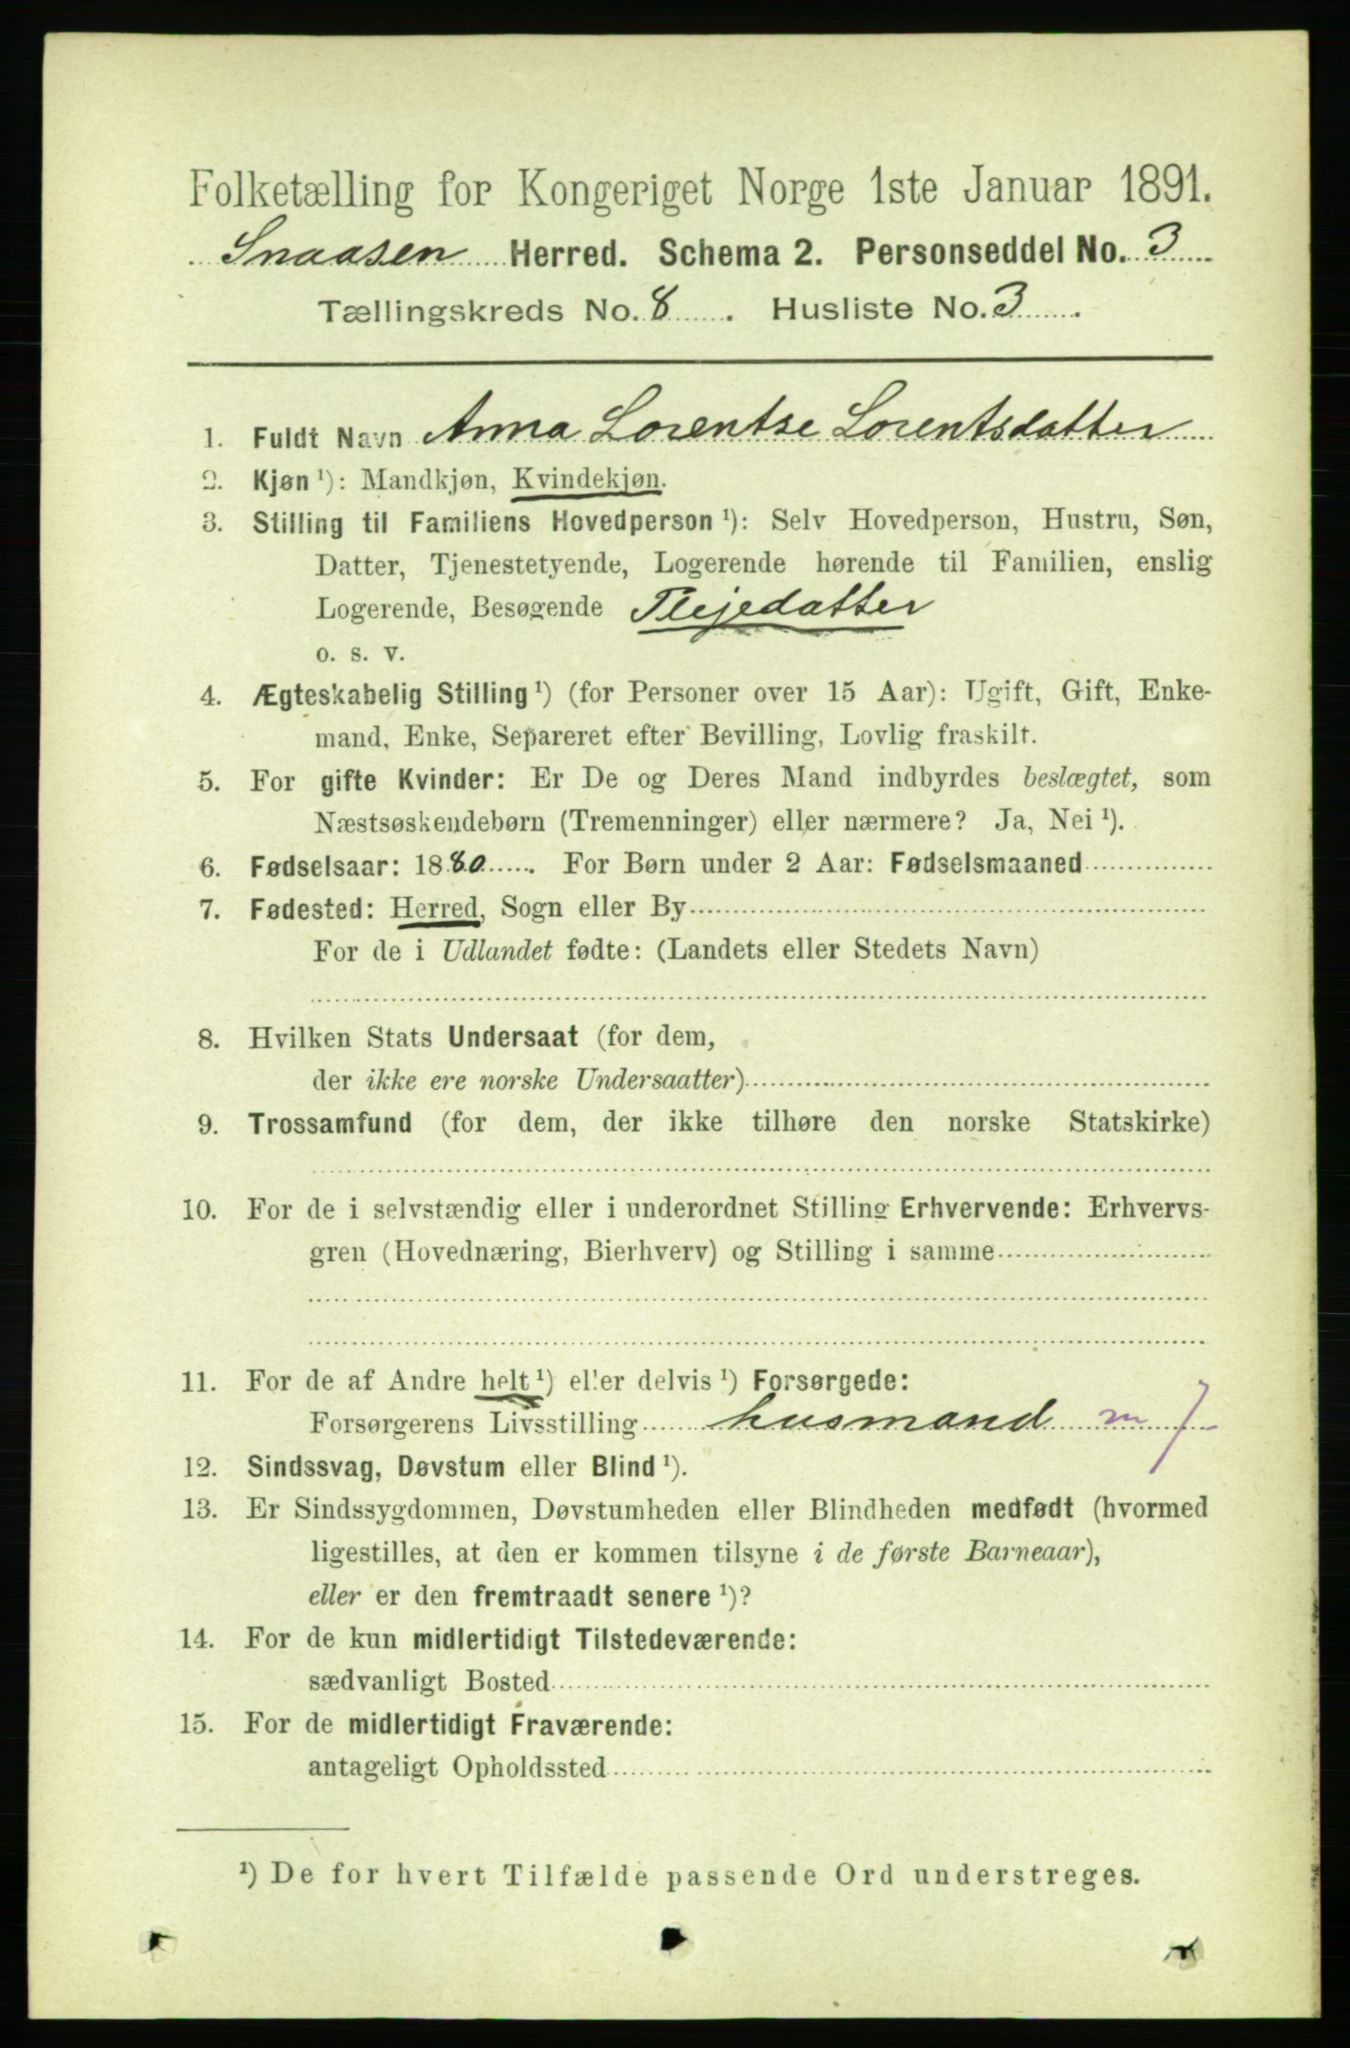 Folketælling for Kongeriget Norge 1ste Januar 1891.
Snaasen Herred. Schema 2. Personseddel No. 3
Tællingskreds No. 8. Husliste No. 3.
1. Fuldt Navn Anna Lorentse Lorentsdatter
2. Kjøn ¹): Mandkjøn, Kvindekjøn.
3. Stilling til Familiens Hovedperson ¹): Selv Hovedperson, Hustru, Søn,
Datter, Tjenestetyende, Logerende hørende til Familien, enslig
Logerende, Besøgende Plejedatter
o. s. v.
4. Ægteskabelig Stilling ¹) (for Personer over 15 Aar): Ugift, Gift, Enke-
mand, Enke, Separeret efter Bevilling, Lovlig fraskilt.
5. For gifte Kvinder: Er De og Deres Mand indbyrdes beslægtet, som
Næstsøskendebørn (Tremenninger) eller nærmere? Ja, Nei ¹).
6. Fødselsaar: 1880. For Børn under 2 Aar: Fødselsmaaned
7. Fødested: Herred, Sogn eller By
For de i Udlandet fødte: (Landets eller Stedets Navn)
8. Hvilken Stats Undersaat (for dem,
der ikke ere norske Undersaatter)
9. Trossamfund (for dem, der ikke tilhøre den norske Statskirke)
10. For de i selvstændig eller i underordnet Stilling Erhvervende: Erhvervs-
gren (Hovednæring, Bierhverv) og Stilling i samme
11. For de af Andre helt ¹) eller delvis ¹) Forsørgede:
Forsørgerens Livsstilling husmand m 7
12. Sindssvag, Døvstum eller Blind ¹).
13. Er Sindssygdommen, Døvstumheden eller Blindheden medfødt (hvormed
ligestilles, at den er kommen tilsyne i de første Barneaar),
eller er den fremtraadt senere ¹)?
14. For de kun midlertidigt Tilstedeværende:
sædvanligt Bosted
15. For de midlertidigt Fraværende:
antageligt Opholdssted
¹) De for hvert Tilfælde passende Ord understreges.